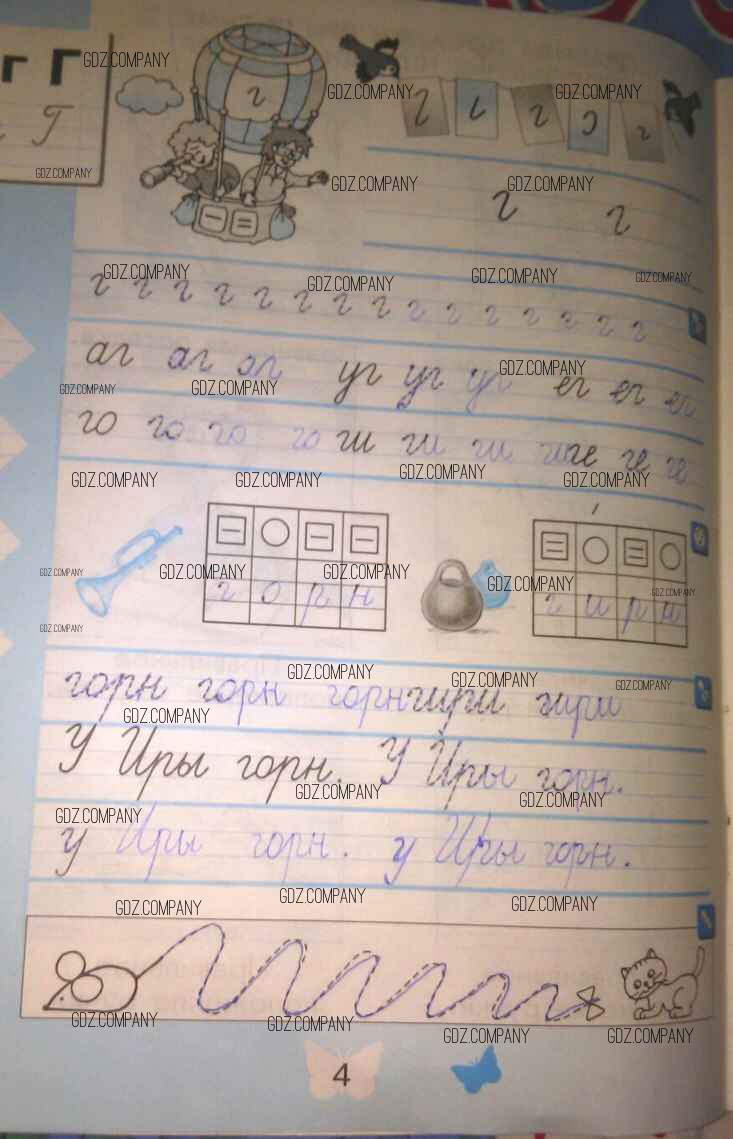 г Г
Г
г
г г г г г
г г
г г г г г г г г г г г г г г г
аг аг аг уг уг уг ег ег ег
го го го го ги ги ги ги ге ге ге
горн
гири
горн горн горн гири гири
У Иры горн. У Иры горн.
У Иры горн. У Иры горн.
4
GDZ.COMPANY